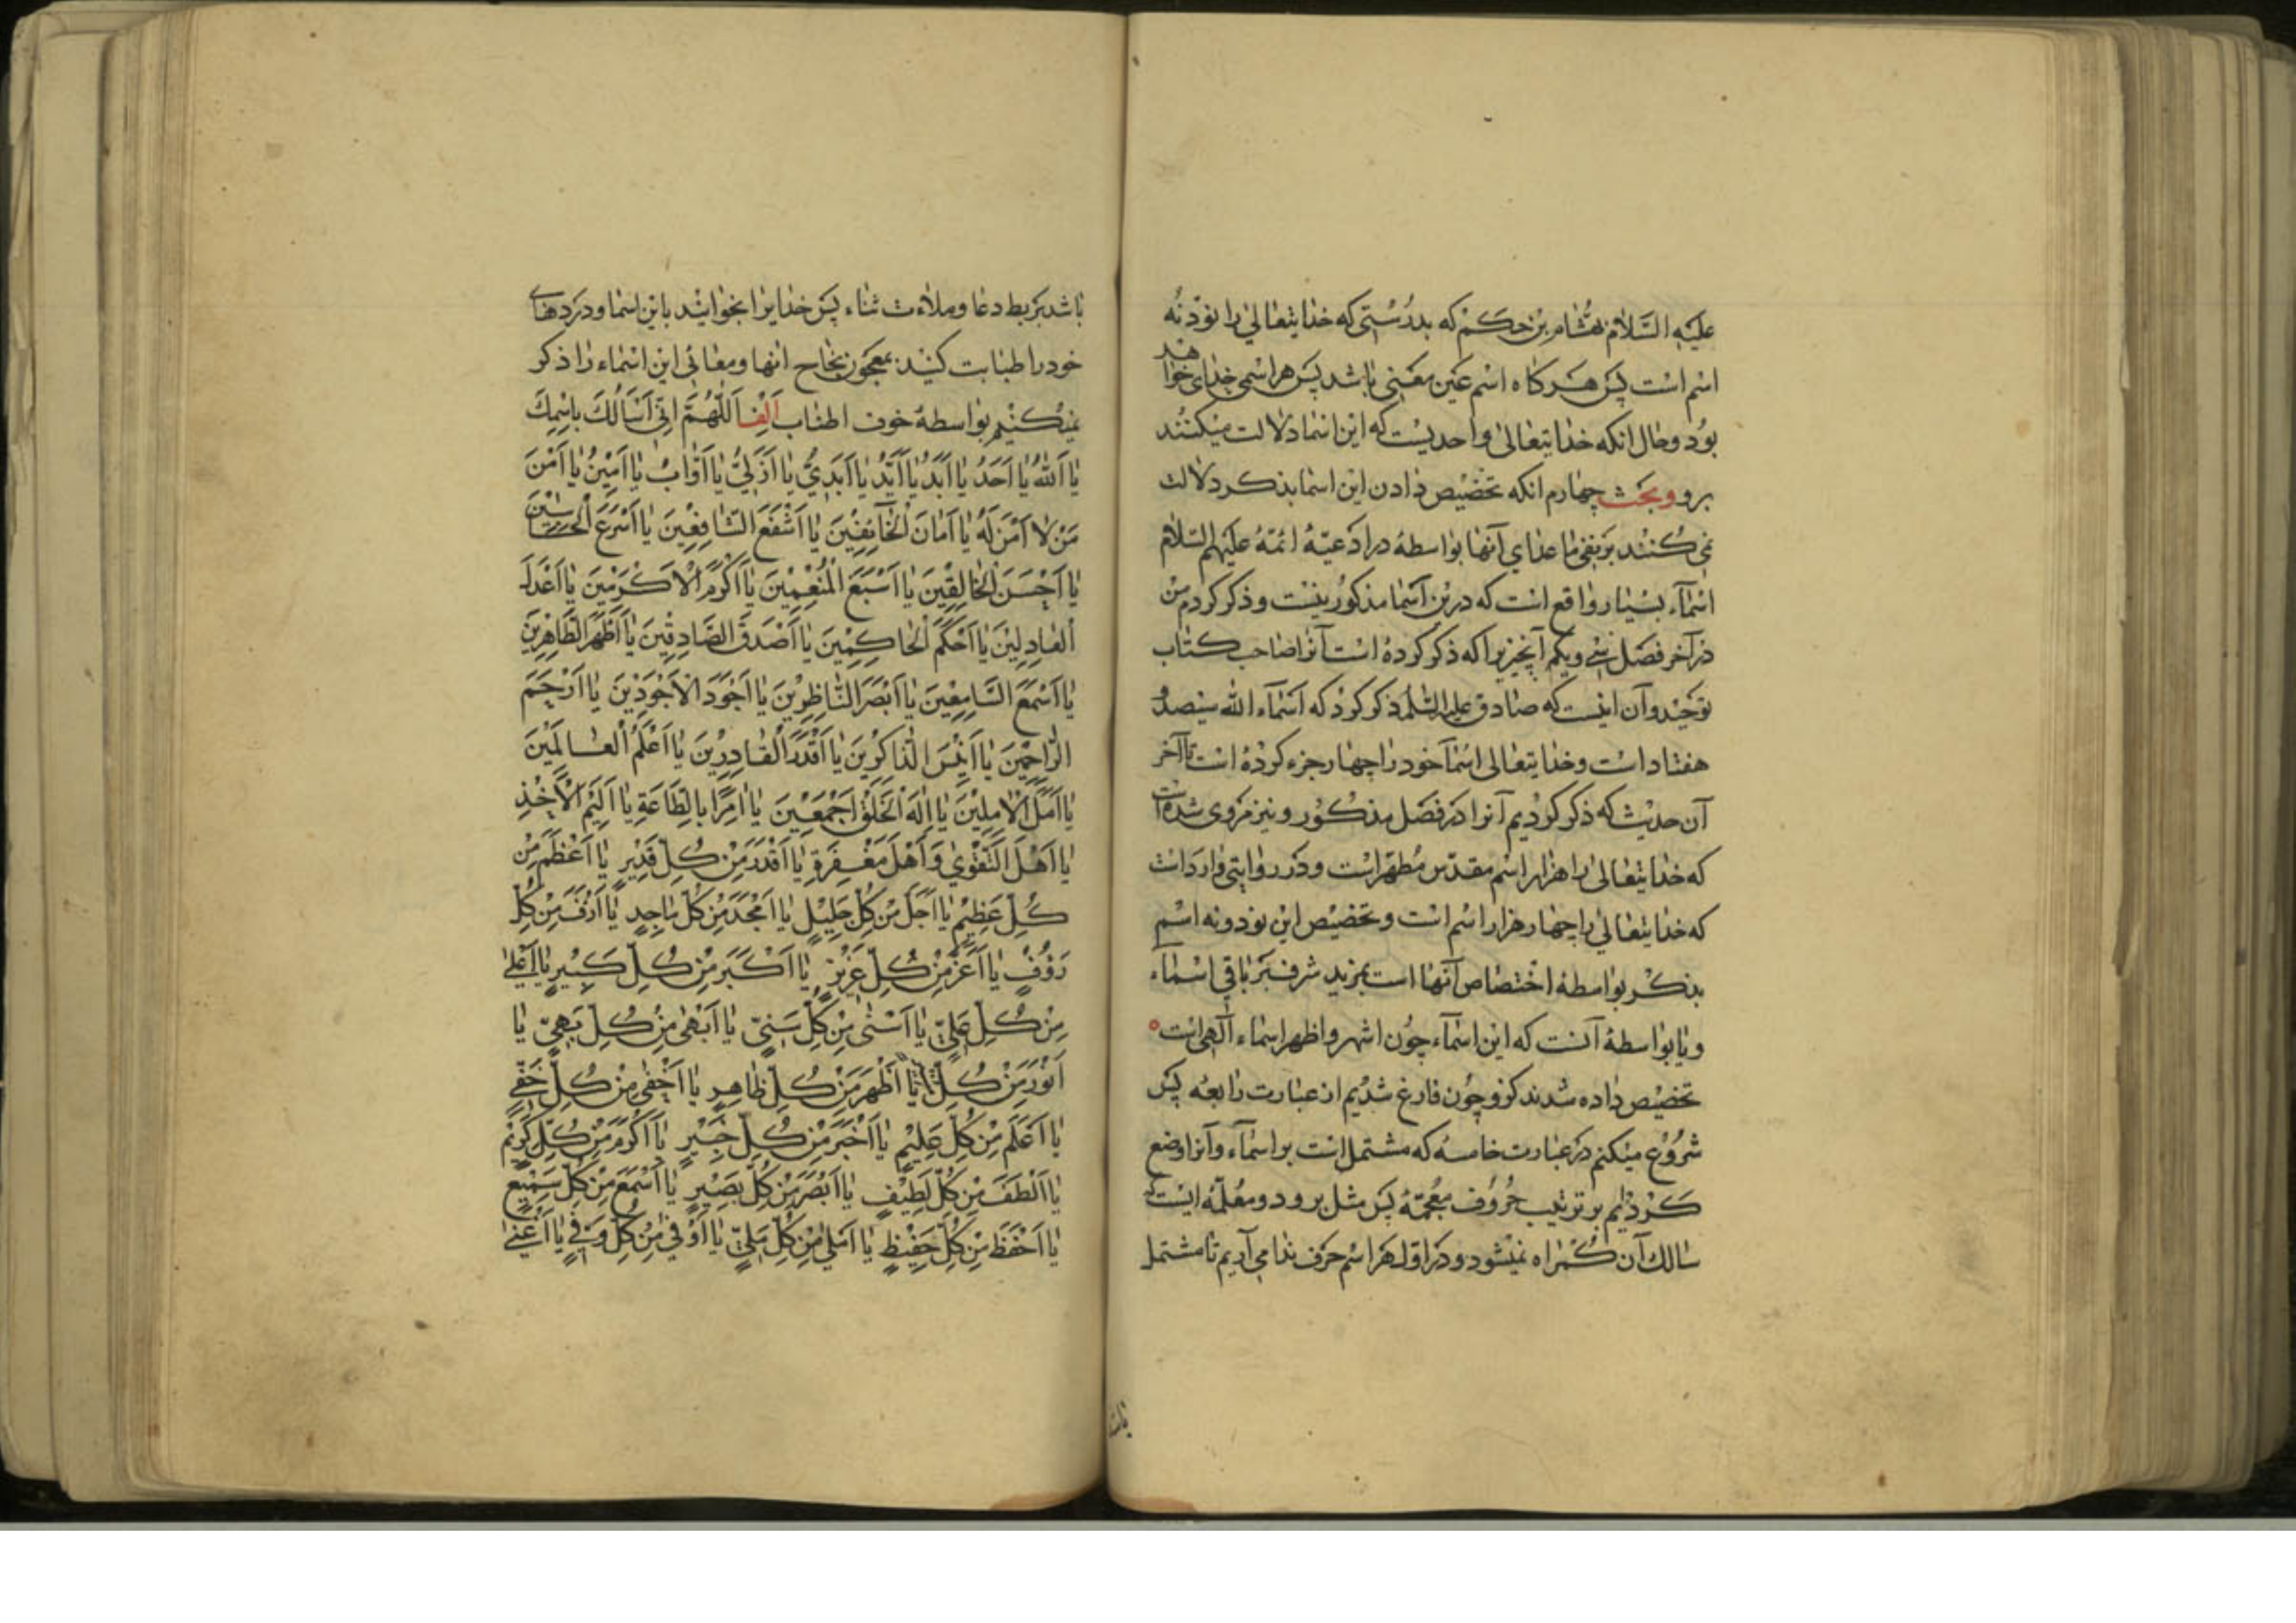 علیه السلام بهشام بن حکم که بدرستی که خدایتعالی را نود نه
اسم است پس هرکاه اسم عین معنی باشد پس هر اسمی خدای خواهد
بود و حال انکه خدایتعالی واحدیست که این اسما دلالت میکنند
برو وبحث چهارم انکه تخصیص دادن این اسما بذکر دلالت
نمی کنند بر نفی ما عدای آنها بواسطهٔ در ادعیهٔ ائمهٔ علیهم السلام
اسمآء بسیار واقع است که درین آسما مذکور نیست و ذکر کردم من
در آخر فصل سی ویکم آنچیزیرا که ذکر کرده است آنرا صاحب کتاب
توحید وآن اینست که صادق علیه السلم ذکر کرد که اسمآء الله سیصد و
هفتاد است وخدایتعالی اسمآ خود را چهار جزء کرده است تا آخر
آن حدیث که ذکر کردیم آنرا در فصل مذکور و نیز مروی شده است
که خدایتعالی را هزار اسم مقدس مطهر است و در روایتی وارد است
که خدایتعالی را چهار هزار اسم است و تخصیص این نود ونه اسم
بذکر بواسطهٔ اختصاص آنها است بمزید شرف بر باقی اسمآء
ویا بواسطهٔ آنست که این اسمآء چون اشهر و اظهر اسماء آلهی است
تخصیص داده شدند کرو چون فارغ شدیم از عبارت رابعه پس
شروع میکنم در عبارت خامسه که مشتمل است بر اسمآء وآنرا وضع
کردیم بر ترتیب حروف معجمهٔ پس مثل برود ومعلمهٔ ایست که
سالك آن کمراه نمیشود و در اول هر اسم حرف ندا می آریم تا مشتمل
باشد بر بط دعا وملاءت ثناء پس خدایرا بخوانید باین اسما و دردهای
خود را طبابت کنید بمعجون نجاح انها ومعانی این اسماء را ذکر
نمیکنیم بواسطهٔ خوف اطناب الف اَللّٰهُمَّ اِنّی اَسْأَلُكَ بِاسْمِكَ
یا اَللهُ یا اَحَدُ یا اَبَدُ یا اَیِّدُ یا اَبَدِیُّ یا اَزَلِیُّ یا اَوّابُ یا اَمینُ یا اَمْنَ
مَنْ لا اَمْنَ لَهُ یا اَمانَ الْخائِفینَ یا اَشْفَعَ الشّافِعینَ یا اَسْرَعَ الْحاسِبینَ
یا اَحْسَنَ الْخالِقینَ یا اَسْبَغَ الْمُنْعِمینَ یا اَكْرَمَ الْاَكْرَمینَ یا اَعْدَلَ
الْعادِلینَ یا اَحْكَمَ الْحاكِمینَ یا اَصْدَقَ الصّادِقینَ یا اَطْهَرَ الطّاهِرینَ
یا اَسْمَعَ السّامِعینَ یا اَبْصَرَ النّاظِرینَ یا اَجْوَدَ الْاَجْوَدینَ یا اَرْحَمَ
الرّاحِمینَ یا اَنیسَ الذّاكِرینَ یا اَقْدَرَ الْقادِرینَ یا اَعْلَمَ الْعالَمینَ
یا اَمَلَ الْآمِلینَ یا اِلٰهَ الْخَلْقِ اَجْمَعینَ یا آمِرًا بِالطّاعَةِ یا اَلیمَ الْاَخْذِ
یا اَهْلَ التَّقْوٰی وَ اَهْلَ مَغْفِرَةِ یا اَقْدَرَ مِنْ كُلِّ قَدیرٍ یا اَعْظَمَ مِنْ
كُلِّ عَظیمٍ یا اَجَلَّ مِنْ كُلِّ جَلیلٍ یا اَمْجَدَ مِنْ كُلِّ ماجِدٍ یا اَرْفَ مِنْ كُلِّ
رَؤُفٍ یا اَعَزَّ مِنْ كُلِّ عَزیزٍ یا اَكْبَرَ مِنْ كُلِّ كَبیرٍ یا اَعْلٰی
مِنْ كُلِّ عَلِیٍّ یا اَسْنٰی مِنْ كُلِّ سَنِیٍّ یا اَبْهٰی مِنْ كُلِّ بَهِیٍّ یا
اَنْوَرَ مِنْ كُلِّ یا اَظْهَرَ مِنْ كُلِّ ظاهِرٍ یا اَخْفٰی مِنْ كُلِّ خَفِیٍّ
یا اَعْلَمَ مِنْ كُلِّ عَلیمٍ یا اَخْبَرَ مِنْ كُلِّ خَبیرٍ یا اَكْرَمَ مِنْ كُلِّ كَریمٍ
یا اَلْطَفَ مِنْ كُلِّ لَطیفٍ یا اَبْصَرَ مِنْ كُلِّ بَصیرٍ یا اَسْمَعَ مِنْ كُلِّ سَمیعٍ
یا اَحْفَظَ مِنْ كُلِّ حَفیظٍ یا اَمْلٰی مِنْ كُلِّ مَلِیٍّ یا اَوْفٰی مِنْ كُلِّ وَفِیٍّ یا اَغْنٰی